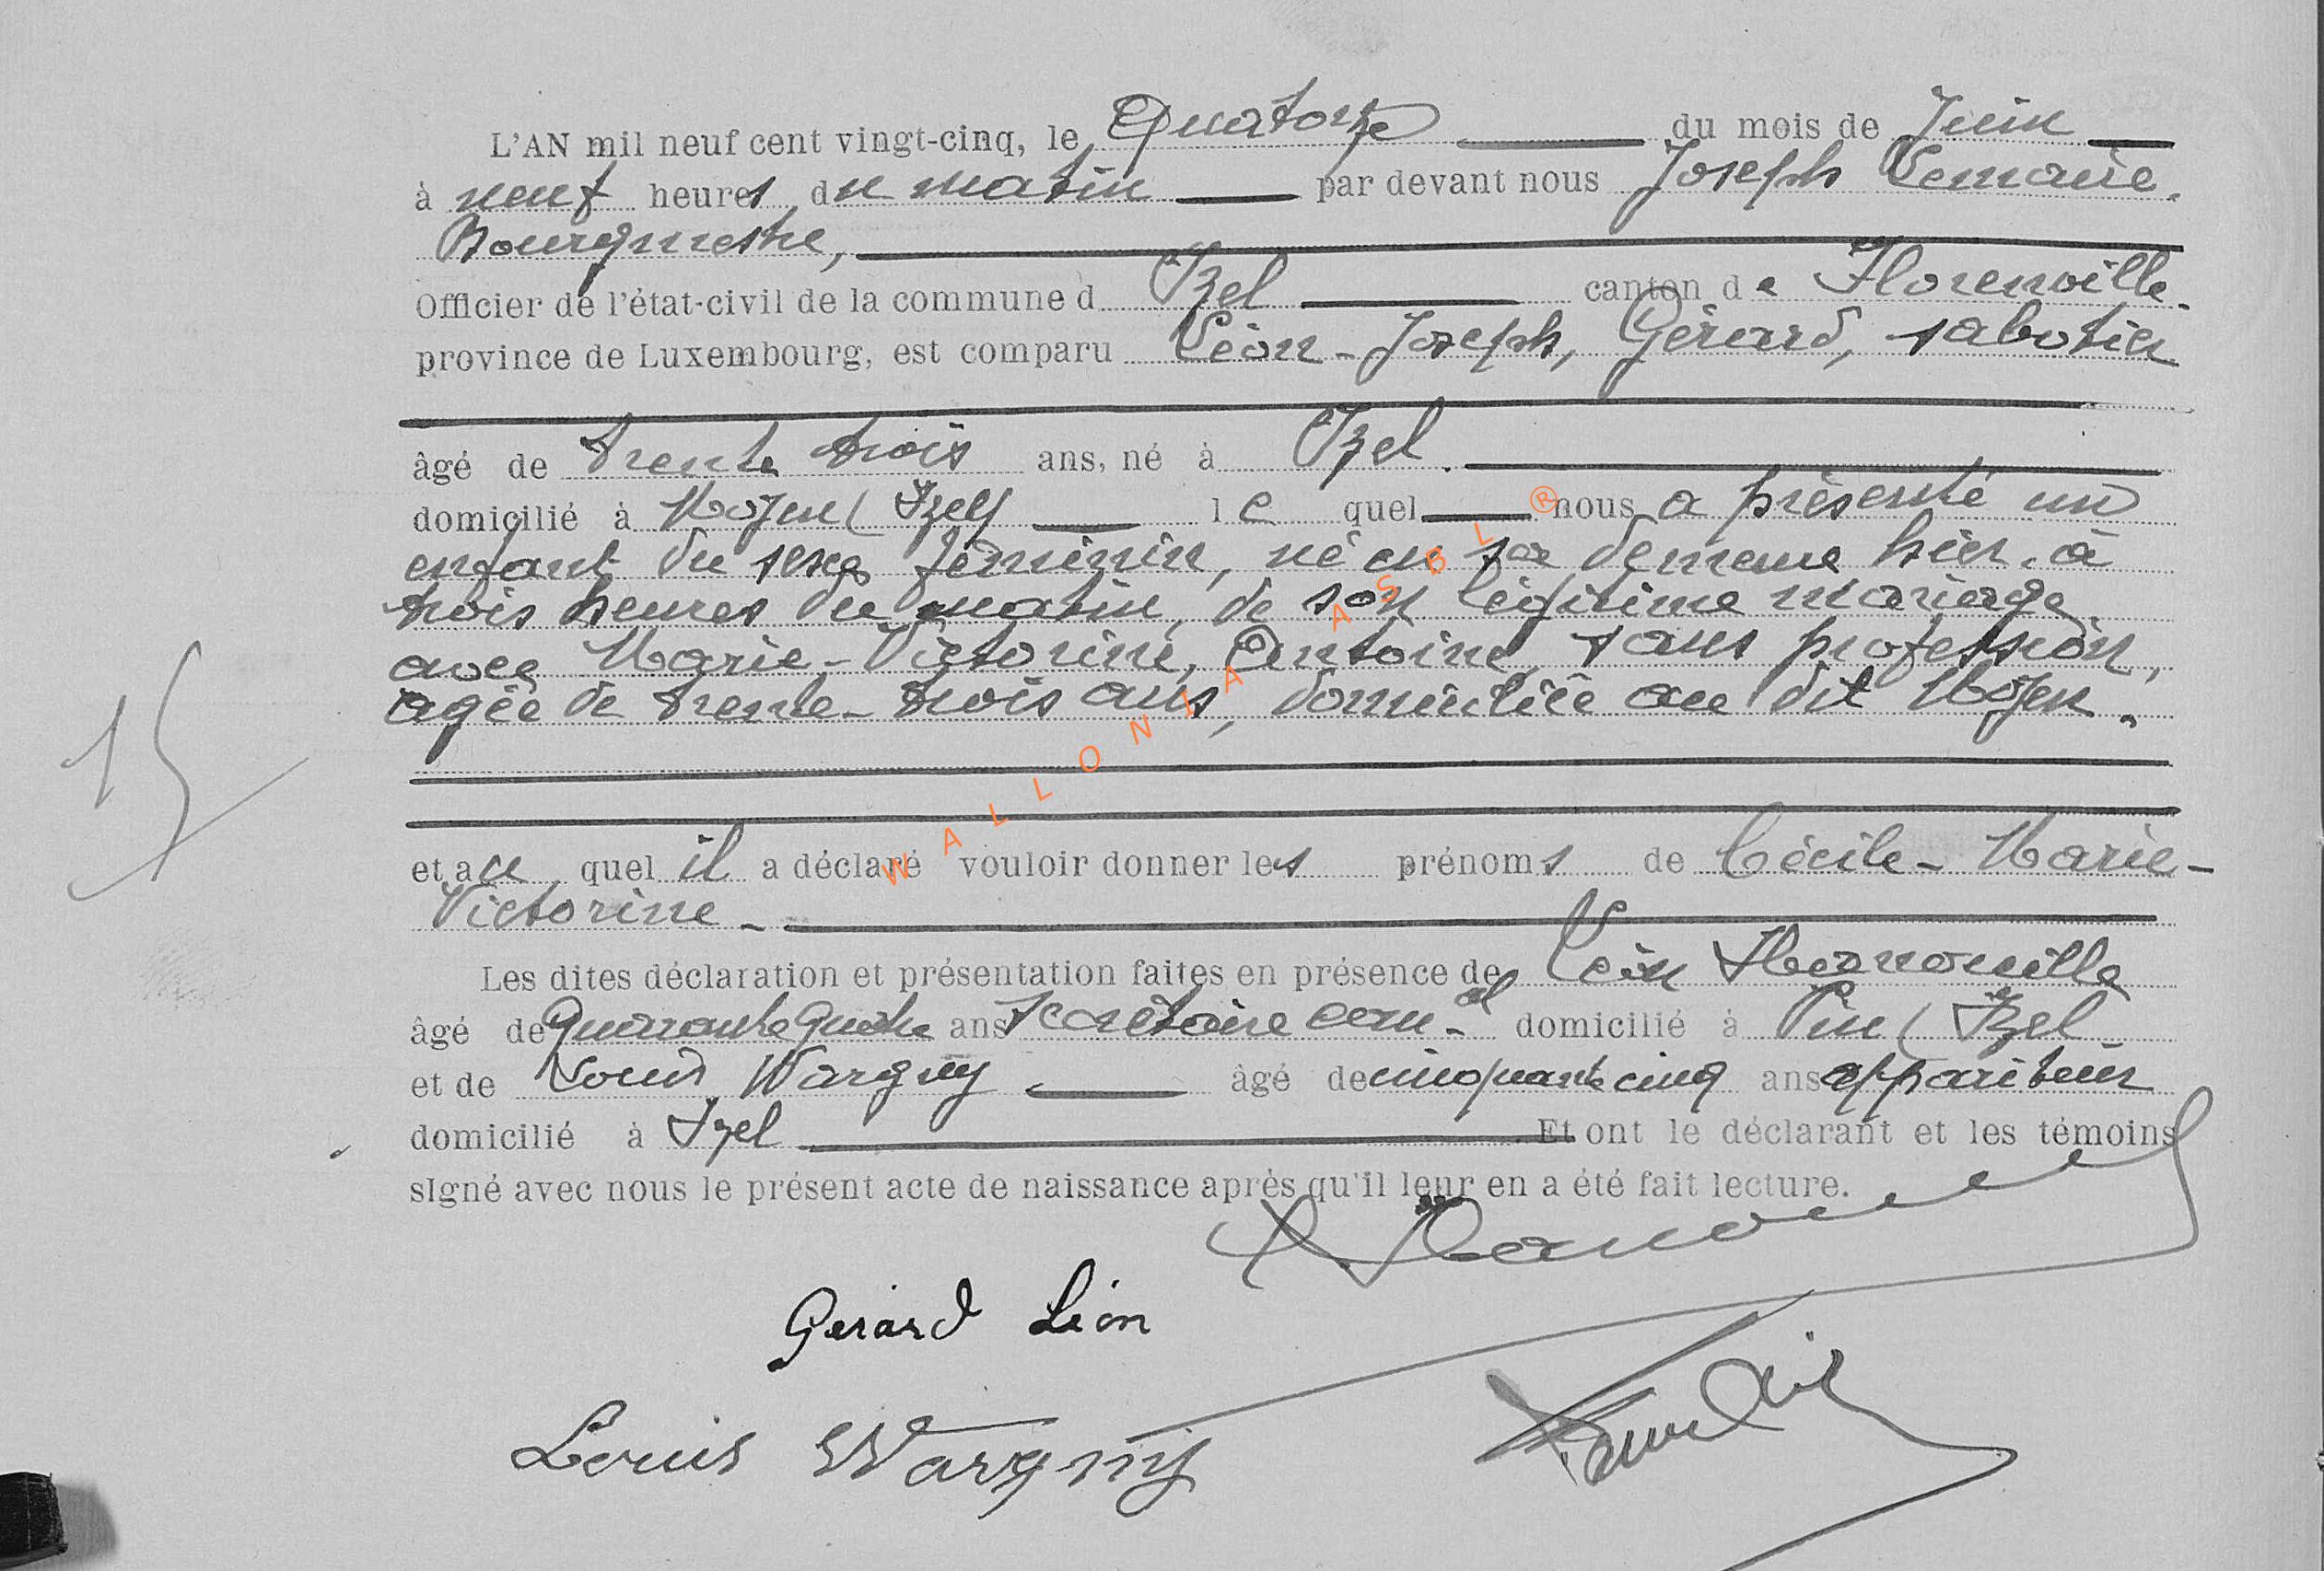 L'AN mil neuf cent vingt-cinq, le Quatorze du mois de Juin
à neuf heures du matin par devant nous Joseph Lemaire.
Bourgmestre,
Officier de l'état-civil de la commune d Izel canton de Florenville.
province de Luxembourg, est comparu Léon-Joseph, Gérard, sabotier
âgé de trente trois ans, né à Izel.
domicilié à Moyen (Izel) lequel nous a présenté un
enfant du sexe féminin, né en sa demeure hier, à
trois heures du matin, de son légitime mariage
avec Marie-Victorine, Antoine, sans profession,
agée de trente-trois ans, domiciliée au dit Moyen.
15
et au quel il a déclaré vouloir donner les prénoms de Cécile-Marie-
Victorine-
Les dites déclaration et présentation faites en présence de Léon
âgé de Quarante quatre ans secrétaire com-al domicilié à Pin (Izel
et de Louis Wargny âgé de cinquante cinq ans appariteur
domicilié à Izel Et ont le déclarant et les témoins
sIgné avec nous le présent acte de naissance après qu'il leur en a été fait lecture.
Gérard Léon
Louis Wargny
WALLONIA ASBL ®